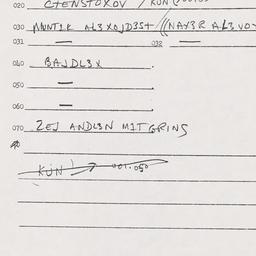 020 CTENSTOXOV / KUN
030 MUNTIK AL3XOJD3S+ / (NAY3R AL3VO
031 — 032 —
040 BAJDL3X
050 —
060 —
070 ZEJ ANDL3N MIT GRINS
KUN → 001.050